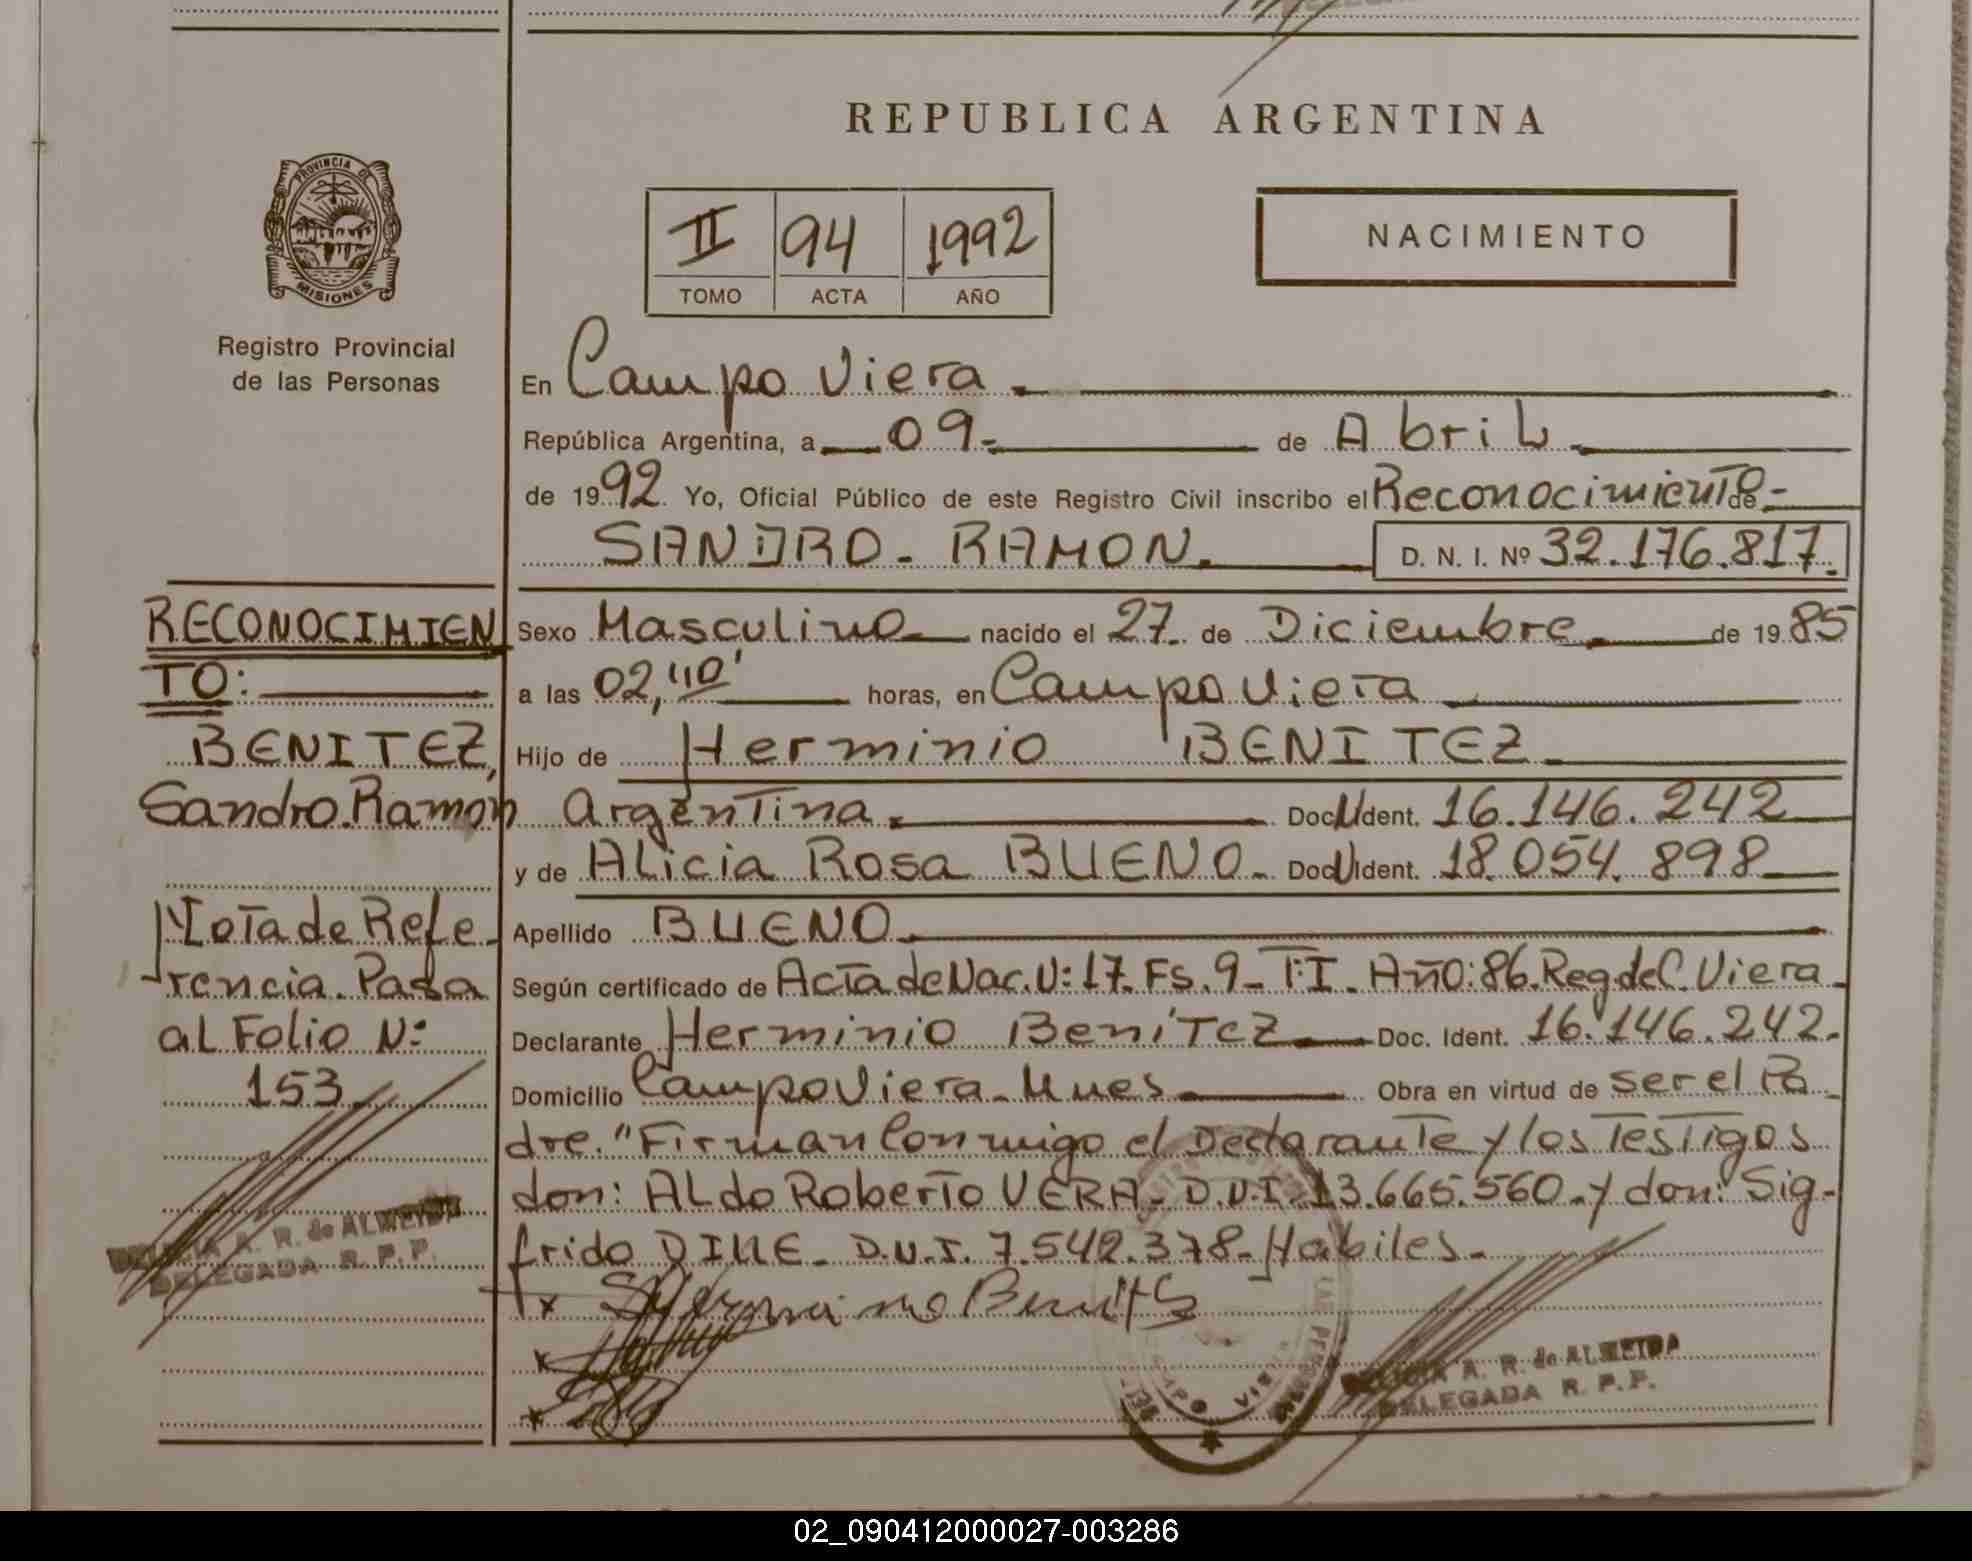 REPUBLICA ARGENTINA
PROVINCIA DE
MISIONES
Registro Provincial
de las Personas
II 94 1992
TOMO ACTA AÑO
NACIMIENTO
En Campo Viera
República Argentina, a 09- de Abril
de 1992. Yo, Oficial Público de este Registro Civil inscribo el Reconocimiento de -
SANDRO - RAMON. D. N. I. Nº 32.176.817.
RECONOCIMIEN
TO:
BENITEZ,
Sandro Ramon
Nota de Refe-
rencia. Pasa
al Folio N:
153
DELICIA A. R. de ALMEIDA
DELEGADA R. P. P.
Sexo Masculino nacido el 27 de Diciembre de 1985
a las 02,40' horas, en Campo Viera
Hijo de Herminio BENITEZ
Argentina. Doc. Ident. 16.146.242
y de Alicia Rosa BUENO. Doc. Ident. 18.054.898
Apellido BUENO
Según certificado de Acta de Nac. N: 17. Fs. 9- T:I. Año: 86. Reg. de C. Viera.
Declarante Herminio Benitez Doc. Ident. 16.146.242.
Domicilio Campo Viera - Mnes Obra en virtud de ser el Pa
dre. "Firman Conmigo el Declarante y los Testigos
don: Aldo Roberto VERA - D.N.I. 13.665.560 - y don: Sig-
frido DILLE - D.N.I. 7.542.378 - Habiles.
DELICIA A. R. de ALMEIDA
DELEGADA R. P. P.
02_090412000027-003286